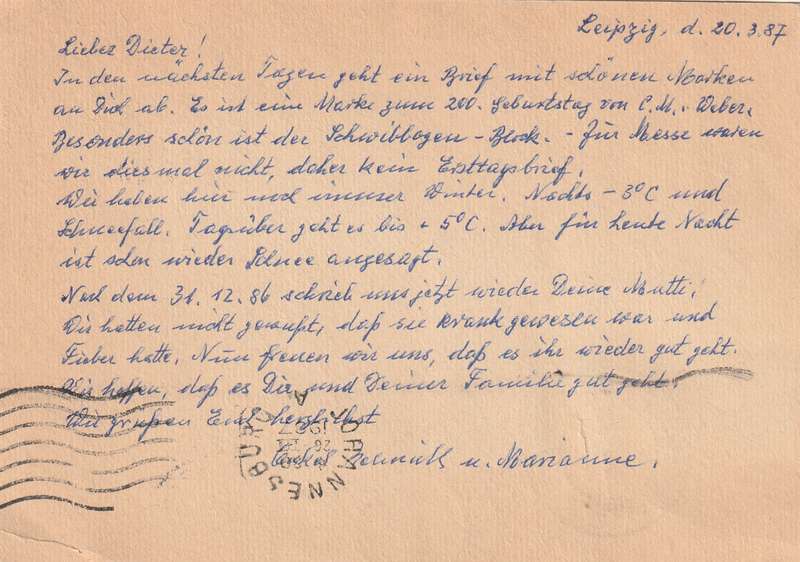 Leipzig, d. 20.3.87
Lieber Dieter!
In den nächsten Tagen geht ein Brief mit schönen Marken
an Dich ab. Es ist eine Marke zum 200. Geburtstag von C.M. Weber.
Besonders schön ist der Schwibbogen-Block. - Zur Messe waren
wir diesmal nicht, daher kein Ersttagsbrief.
Wir haben hier noch immer Winter. Nachts - 3°C und
Schneefall. Tagsüber geht es bis + 5°C. Aber für heute Nacht
ist schon wieder Schnee angesagt.
Nach dem 31.12.86 schrieb uns jetzt wieder Deine Mutti!
Wir hatten nicht gewußt, daß sie krank gewesen war und
Fieber hatte. Nun freuen wir uns, daß es ihr wieder gut geht.
Wir hoffen, daß es Dir und Deiner Familie gut geht.
Wir grüßen Euch herzlichst
u. Marianne.
JOHANNESBURG